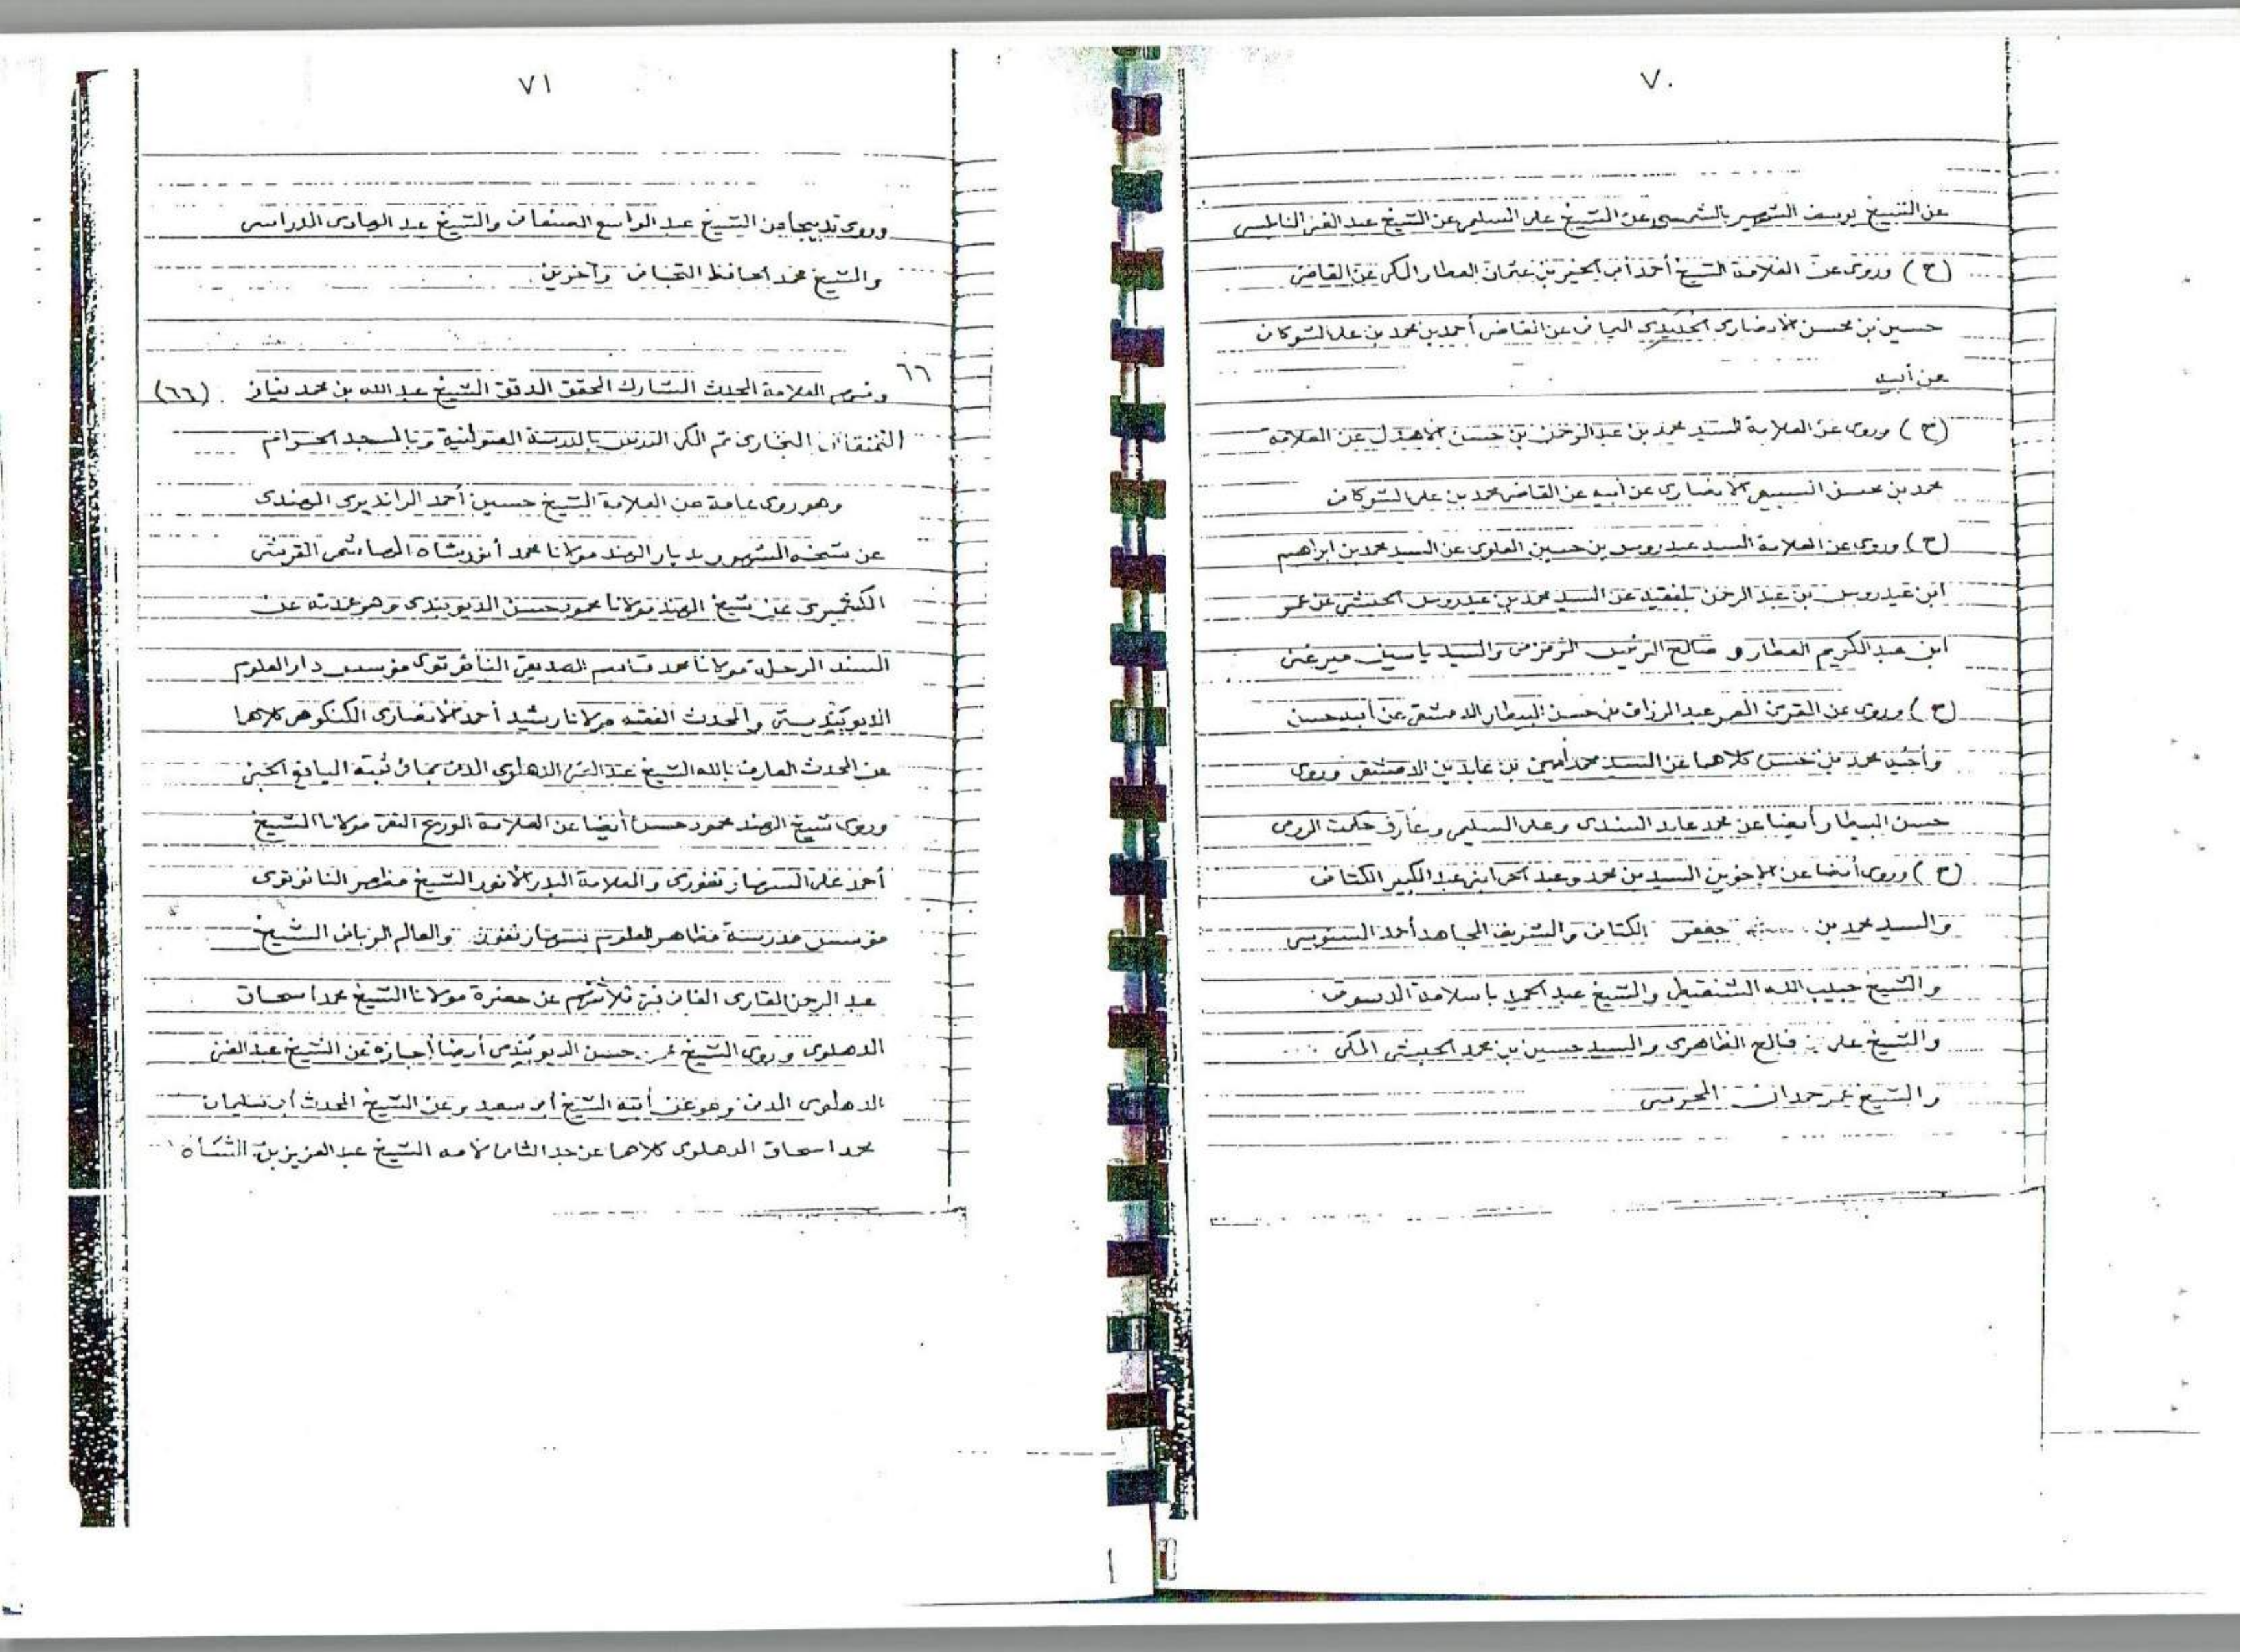 ٧٠
عن الشيخ يوسف الشهير بالشمسي عن الشيخ علي السليمي عن الشيخ عبد الغني النابلسي
(ح) وروى عن العلامة الشيخ أحمد أبي الخير بن عثمان العطار المكي عن القاضي
حسين بن محسن الأنصاري الحديدي اليماني عن القاضي أحمد بن محمد بن علي الشوكاني
عن أبيه
(ح) وروى عن العلامة السيد محمد بن عبد الرحمن بن حسن الأهدل عن العلامة
محمد بن محسن السبيعي الأنصاري عن أبيه عن القاضي محمد بن علي الشوكاني
(ح) وروى عن العلامة السيد عيدروس بن حسين العلوي عن السيد محمد بن ابراهيم
ابن عيدروس بن عبد الرحمن بلفقيه عن السيد محمد بن عيدروس الحبشي عن عمر
ابن عبد الكريم العطار و صالح الرئيس الزمزمي والسيد ياسين ميرغني
(ح) وروى عن المعمر عبد الرزاق بن حسن البيطار الدمشقي عن أبيه حسن
وأخيه محمد بن حسن كلاهما عن السيد محمد أمين بن عابدين الدمشقي وروى
حسن البيطار أيضا عن محمد عابد السندي وعلي السليمي وعارف حكمت الرومي
(ح) وروى أيضا عن الأخوين السيدين محمد وعبد الحي ابني عبد الكبير الكتاني
والسيد محمد بن جعفر الكتاني والشريف المجاهد أحمد السنوسي
والشيخ حبيب الله الشنقيطي والشيخ عبد الحميد باسلامة الدسوقي
والشيخ علي فالح الظاهري والسيد حسين بن محمد الحبشي المكي
والشيخ عمر حمدان المحرسي
٧١
وروى تدبيجا عن الشيخ عبد الواسع الصنعاني والشيخ عبد الهادي المدراسي
والشيخ محمد الحافظ التجاني وآخرين
٦٦
ومنهم العلامة المحدث المشارك المحقق المدقق الشيخ عبد الله بن محمد نيازي (٦٦)
النمنقاني البخاري ثم المكي المدرس بالمدرسة الصولتية وبالمسجد الحرام
وهو روى عامة عن العلامة الشيخ حسين أحمد الرانديري الهندي
عن شيخه الشهير بديار الهند مولانا محمد أنور شاه الهاشمي القريشي
الكشميري عن شيخ الهند مولانا محمود حسن الديوبندي وهو عن
السند الرحلة مولانا محمد قاسم الصديقي النانوتوي مؤسس دار العلوم
الديوبندية والمحدث الفقيه مولانا رشيد أحمد الأنصاري الكنكوهي كلاهما
عن المحدث العارف بالله الشيخ عبد الغني الدهلوي المدني بما في ثبته اليانع الجني
وروى شيخ الهند محمود حسن أيضا عن العلامة الورع التقي مولانا الشيخ
أحمد علي السهارنفوري والعلامة البدر الأنور الشيخ مظهر النانوتوي
مؤسس مدرسة مظاهر العلوم بسهارنفور والعالم الرباني الشيخ
عبد الرحمن القاري الفاني فتي ثلاثتهم عن حضرة مولانا الشيخ محمد اسحاق
الدهلوي وروى الشيخ حسن الديوبندي أيضا إجازة عن الشيخ عبد الغني
الدهلوي المدني وهو عن أبيه الشيخ أبو سعيد وعن الشيخ المحدث أبو سليمان
محمد اسحاق الدهلوي كلاهما عن جد الثاني لأمه الشيخ عبد العزيز بن الشاه